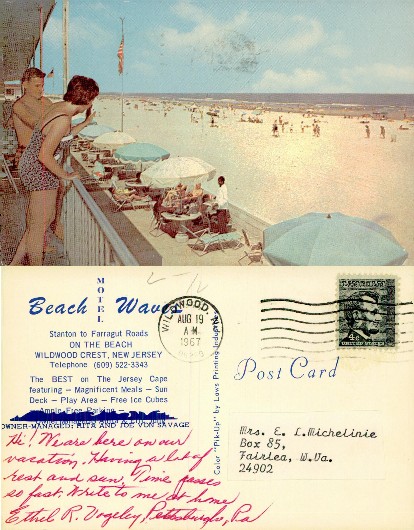 MOTEL
Beach Waves
Stanton to Farragut Roads
ON THE BEACH
WILDWOOD CREST, NEW JERSEY
Telephone (609) 522-3343
The BEST on The Jersey Cape
featuring - Magnificent Meals - Sun
Deck - Play Area - Free Ice Cubes
Ample Free Parking -
OWNER-MANAGED: RITA AND JOE VON SAVAGE
Hi! We are here on our
vacation. Having a lot of
rest and sun. Time passes
so fast. Write to me at home
Ethel R. Pittsburgh, Pa
WILDWOOD, N.J.
AUG 19
A M
1967
Color "Pik-Up" by Laws Printing
4¢
UNITED STATES
Post Card
Mrs. E. L. Michelinie
Box 85,
Fairlea, W.Va.
24902